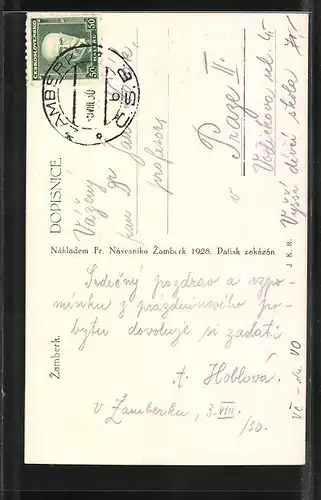 ČESKOSLOVENSKO
50 HALÉŘŮ 50
ŽAMBERK
3 VIII 30
DOPISNICE
Vážený
pan Dr
profesor
v Praze II.
Vodičkova ul. 4
Vyšší dívčí škola
Nákladem Fr. Návesníka Žamberk 1928. Patisk zakázán.
J K R.
Žamberk.
Srdečný pozdrav a vzpo-
mínku z prázdninového po-
bytu dovoluje si zaslati
A. Hoblová.
v Žamberku, 3. VIII.
/30.